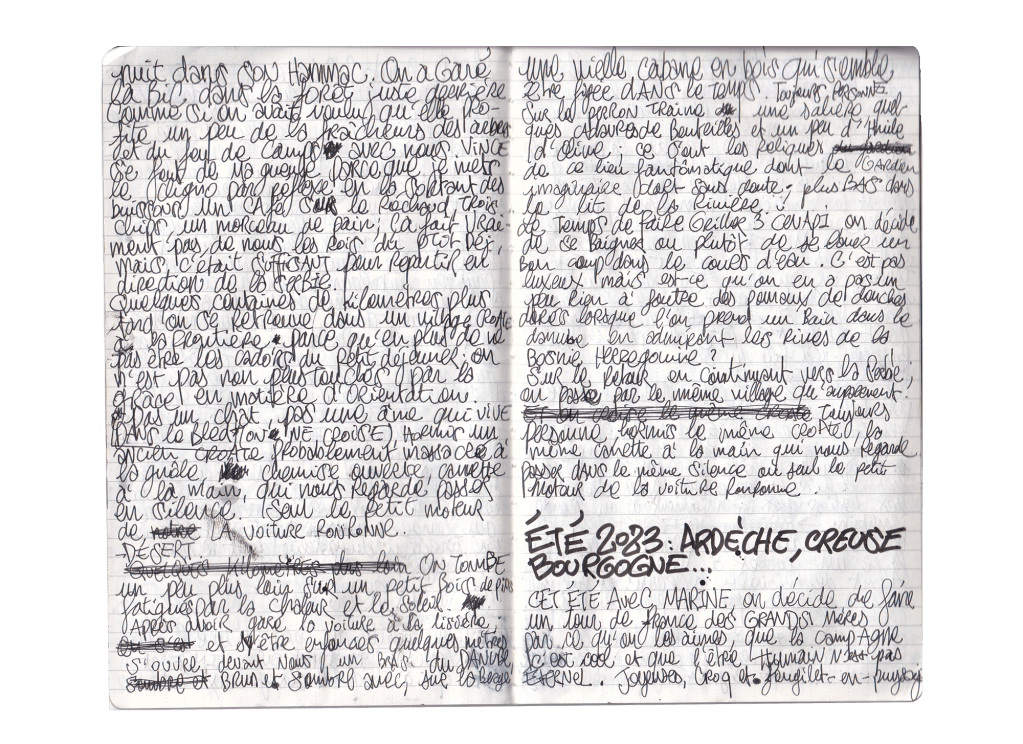 nuit dans son Hammac. On a Garé
la Bic dans la foret juste derrière
comme si on avait voulu qu'elle pro-
fite un peu de la fraicheurs des arbres
et du feu de camps avec nous. VINCE
se fout de ma gueule parce que je mets
le cligno par reflexe en la sortant des
buissons. un café sur le réchaud, trois
chips, un morceau de pain, ça fait vrai-
ment pas de nous les rois du ptit Déj,
mais c'était suffisant pour repartir en
direction de la Serbie.
Quelques centaines de kilomètres plus
tard on se retrouve dans un village croate
à la frontière, parce qu'en plus de ne
pas être les cadors du petit déjeuner, on
n'est pas non plus touchés par la
grâce en matière d'orientation.
Pas un chat, pas une âme qui vive
dans le bled (on ne croise), hormis un
ancien croate probablement massacré à
la gnôle, chemise ouverte, canette
à la main, qui nous regarde passer
en silence. Seul le petit moteur
de LA voiture ronronne.
DESERT
On TOMBE
un peu plus loin sur un petit bois de pins
fatigués par la chaleur et le soleil.
Après avoir garé la voiture à la lisière
et s'être enfoncés quelques mètres
s'ouvre devant nous un bras du DANUBE
Brun et sombre avec, sur la berge
une vielle cabane en bois qui semble
être figée dANS le temps. Toujours PERSONNE.
Sur le perron traine une salière quel-
ques cadavres de Bouteilles et un peu d'Huile
d'olive; ce sont les reliques
de ce lieu fantômatique dont le GARDIEN
imaginaire s'est sans doute plus BAS dans
le lit de la Rivière.
Le temps de faire Griller 3 CEVAPI on décide
de se baigner ou plutôt de se laver un
bon coup dans le cours d'eau. C'est pas
luxeux mais est-ce qu'on en a pas un
peu rien à foutre des pommeaux de douches
dorés lorsque l'on prend un bain dans le
danube en admirant les rives de la
Bosnie Herzégovine ?
Sur le retour en continuant vers la Serbie,
on passe par le même village qu'auparavent.
Toujours
personne hormis le même croate, la
même canette à la main qui nous regarde
passer dans le même silence où seul le petit
moteur de la voiture ronronne.
ÉTÉ 2023 : ARDÈCHE, CREUSE
BOURGOGNE...
CET ETE Avec MARINE, on décide de faire
un tour de france des GRANDS Mères
Par ce qu'on les aimes, que la campAgne
c'est cool et que l'être Humain n'est pas
ETERNEL. Joyeuses, Crocq et Feugilet-en-puisaye